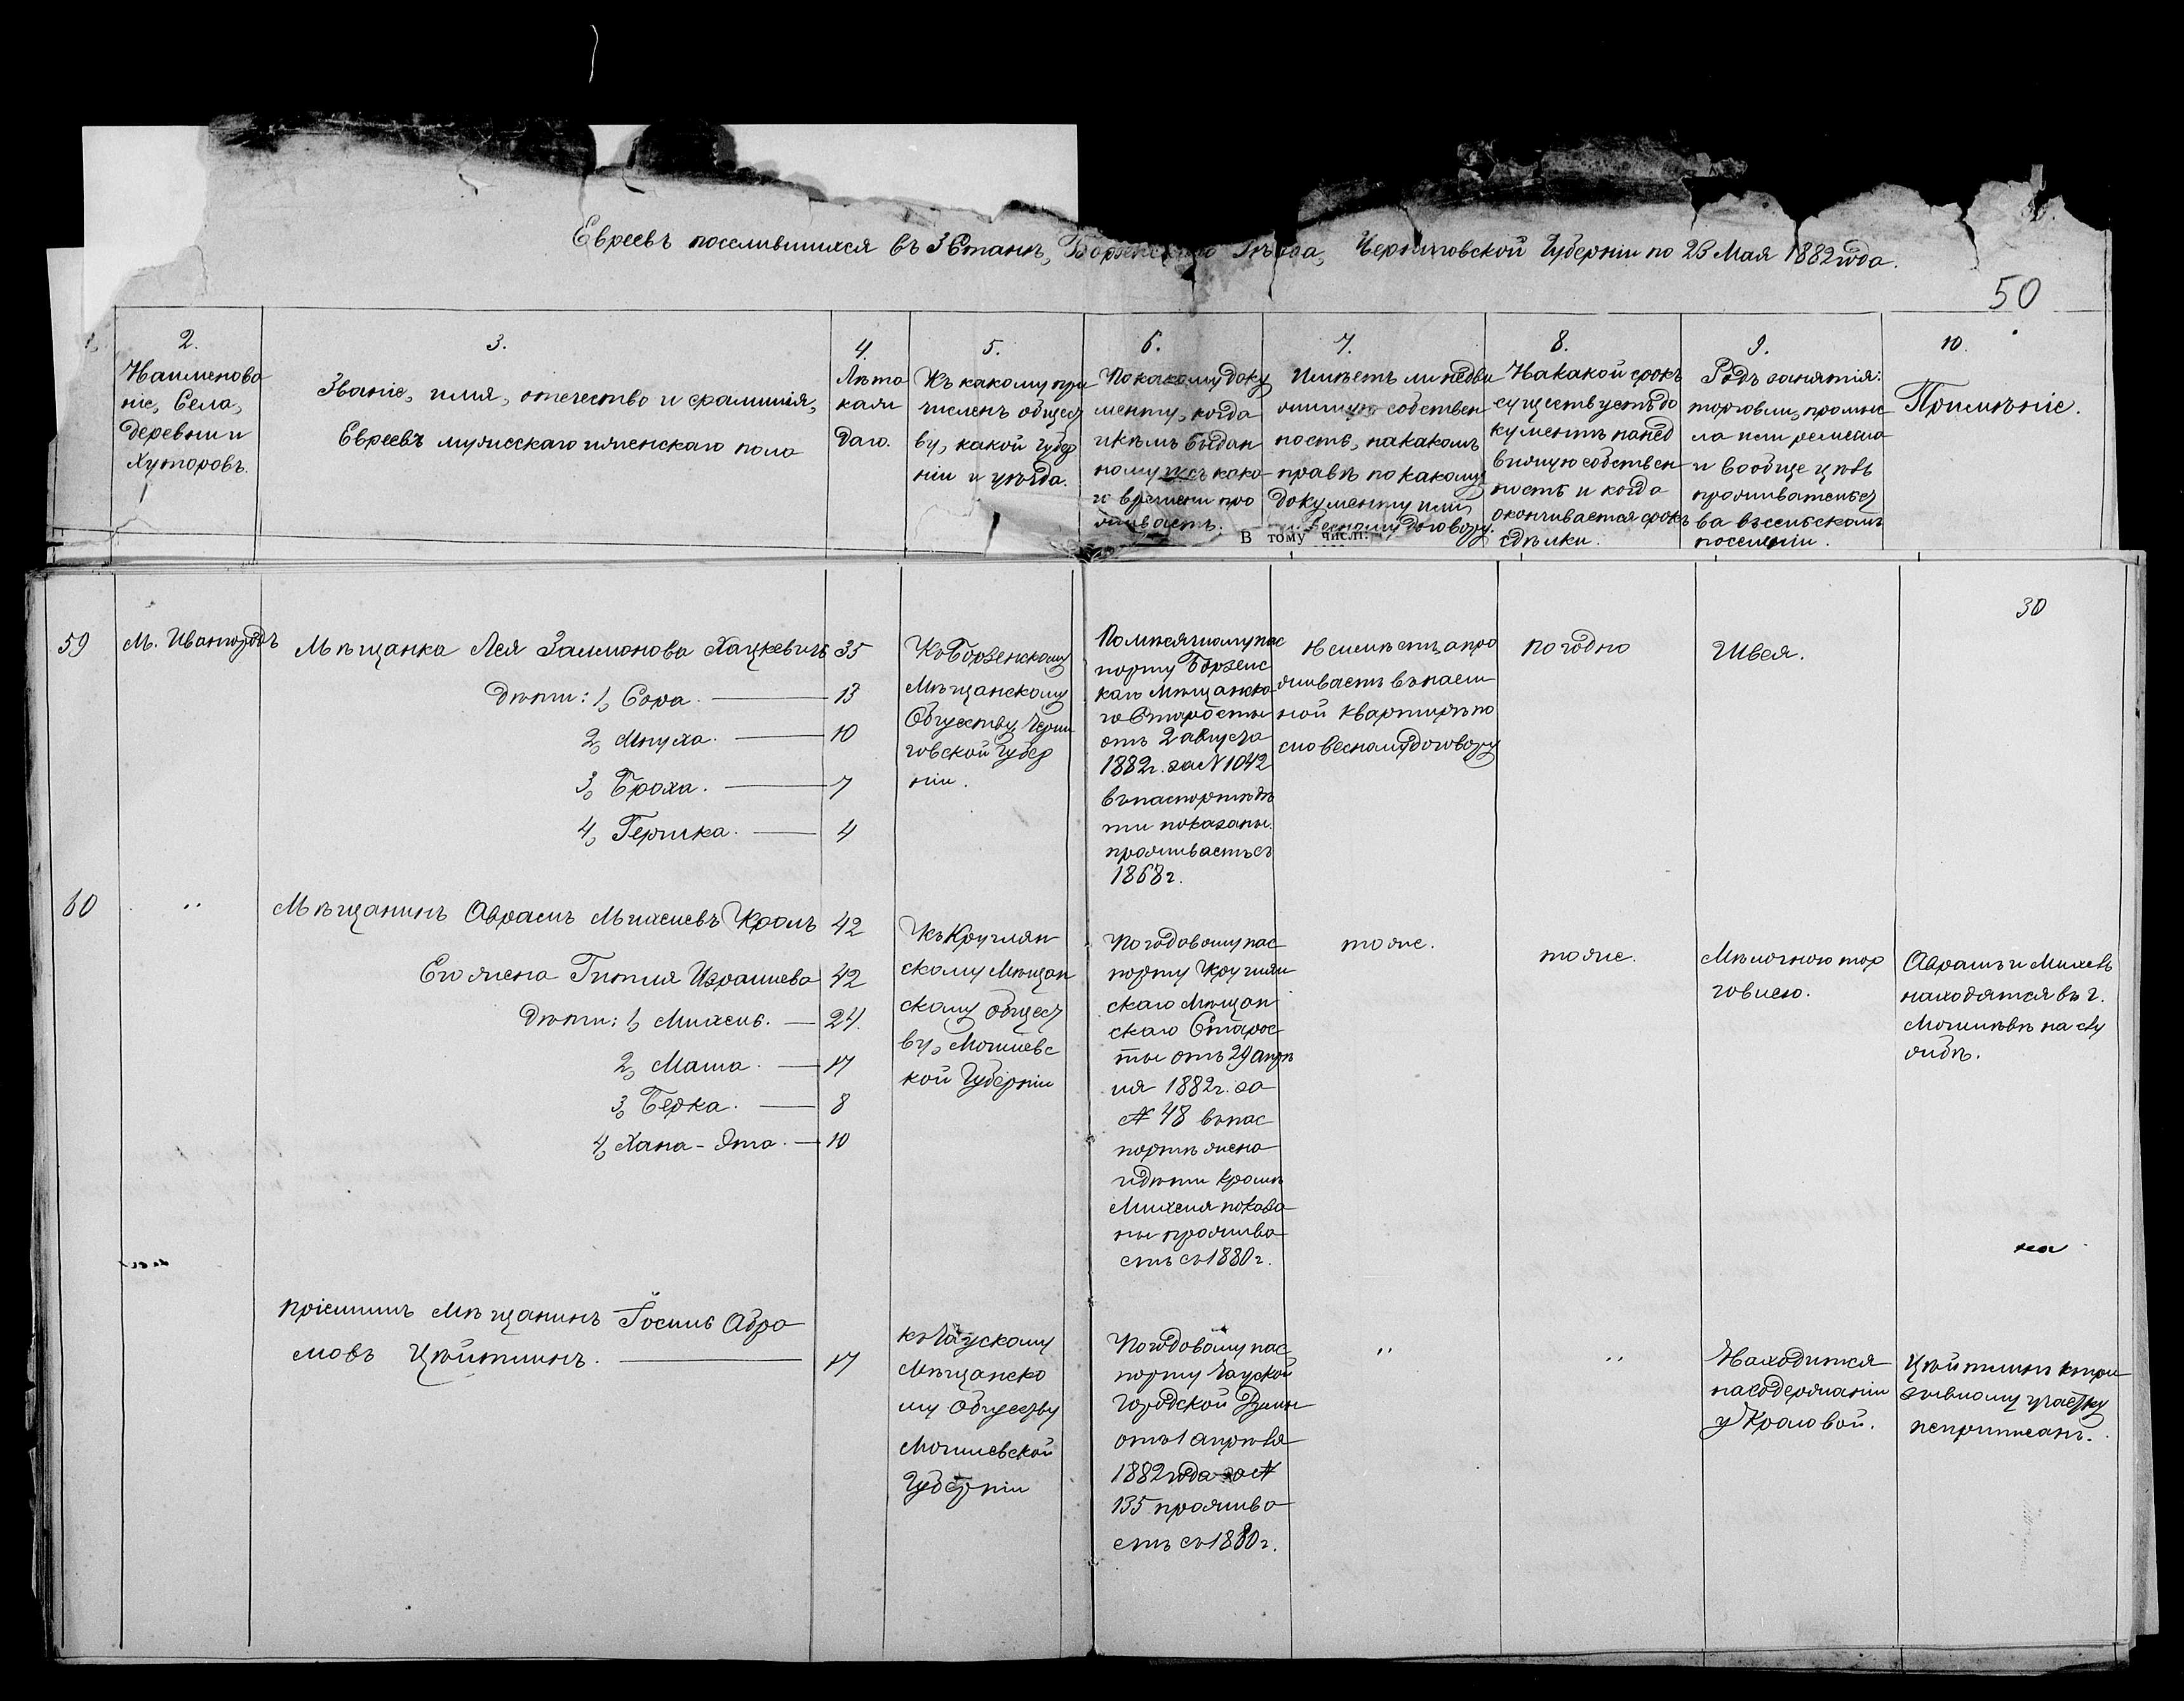 Евреевъ поселившихся въ 3 Станѣ, Борзенскаго Уѣзда, Черниговской Губерніи по 23 Мая 1882 года.
50
2.
Наименова
ніе, Села,
деревни и
Хуторовъ.
3.
Званіе, имя, отечество и фамилія,
Евреевъ мужескаго и женскаго пола
4.
Лѣта
кажд
даго.
5.
Къ какому при
численъ общест
ву, какой губер
ніи и уѣзда.
6.
По какому доку
менту, когда
и кѣмъ выдан
ному и съ како
го времени про
живаетъ.
7.
Имѣетъ ли недви
жимую собствен
ность, на какомъ
правѣ по какому
документу или
словесному договору.
В тому числі:
8.
На какой срокъ
существуетъ до
кументъ на нед
вижимую собствен
ность и когда
оканчивается срокъ
сдѣлки.
9.
Родъ занятія:
торговли, промыс
ла или ремесла
и вообще цѣль
прожительст
ва въ сельскомъ
поселеніи.
10.
Примѣніе.
30
59
М. Ивангородъ
Мѣщанка Лея Залмонова Хацкевичъ 35
Дѣти: 1, Сора. — 13
2, Мнуха. — 10
3, Броха. — 7
4, Гершка. — 4
Къ Борзенскому
Мѣщанскому
Обществу Черни
говской Губер
ніи.
По мѣсячному пас
порту Борзенс
каго Мѣщанска
го Старосты
отъ 2 августа
1882 г. за N 1042
въ паспортѣ дѣ
ти показаны.
проживаетъ съ
1868 г.
Не имѣетъ, а про
живаетъ въ наем
ной квартирѣ по
словесному договору
погодно
Швея.
60
"
Мѣщанинъ Абрамъ Михелевъ Кролъ 42
Его жена Гитля Израилева 42
Дѣти: 1, Михель. — 24.
2, Маша. — 17
3, Берка. — 8
4, Хана-Эта. — 10
Къ Круглян
скому Мѣщан
скому общест
ву, Могилевс
кой Губерніи
По годовому пас
порту Круглян
скаго Мѣщан
скаго Старос
ты отъ 29 апрѣ
ля 1882 г. за
N 48 въ пас
портѣ жена
и дѣти кромѣ
Михеля показа
ны прожива
етъ съ 1880 г.
тоже.
тоже.
Мѣлочною тор
говлею.
Абрамъ и Михель
находятся въ г.
Могилевѣ на слу
жбѣ.
пріемышъ Мѣщанинъ Іосиль Абра
мовъ Цѣйтлинъ. — 17
къ Чаускому
Мѣщанско
му Обществу
Могилевской
Губерніи
По годовому пас
порту Чауской
Городской Думы
отъ 1 апрѣля
1882 года за N
135 прожива
етъ съ 1880 г.
"
"
Находится
на содержаніи
у Кроловой.
Цѣйтлинъ къ при
зывному участку
неприписанъ.